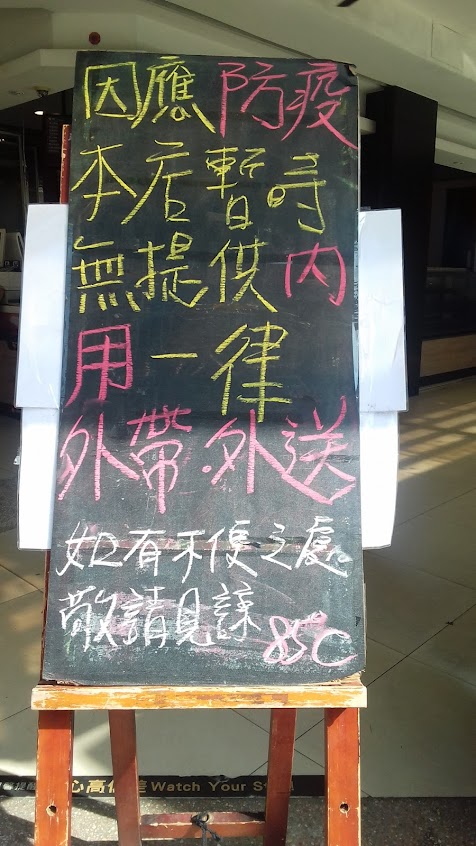 因應防疫
本店暫時
無提供內
用一律
外帶.外送
如有不便之處
敬請見諒 85C
心高低差 Watch Your St